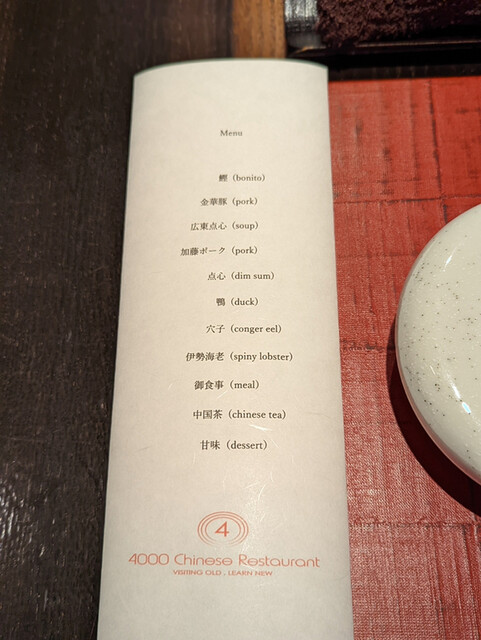 Menu
鰹 (bonito)
金華豚 (pork)
広東点心 (soup)
加藤ポーク (pork)
点心 (dim sum)
鴨 (duck)
穴子 (conger eel)
伊勢海老 (spiny lobster)
御食事 (meal)
中国茶 (chinese tea)
甘味 (dessert)
4
4000 Chinese Restaurant
VISITING OLD, LEARN NEW